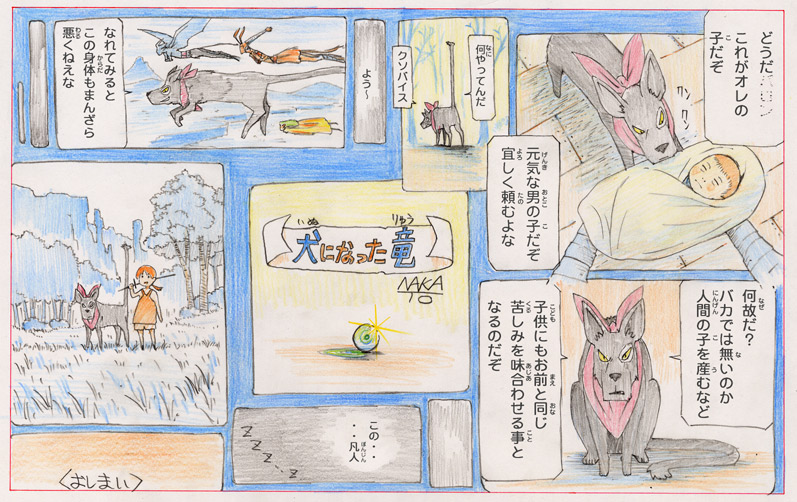 どうだ
これがオレの
子だぞ
クン
クン
元気な男の子だぞ
宜しく頼むよな
何故だ?
バカでは無いのか
人間の子を産むなど
子供にもお前と同じ
苦しみを味合わせる事と
なるのだぞ
何やってんだ
クソバイス
犬になった竜
NAKA
TO
この・・
・・凡人
ZZZ...Z
よう〜
なれてみると
この身体もまんざら
悪くねえな
〈おしまい〉